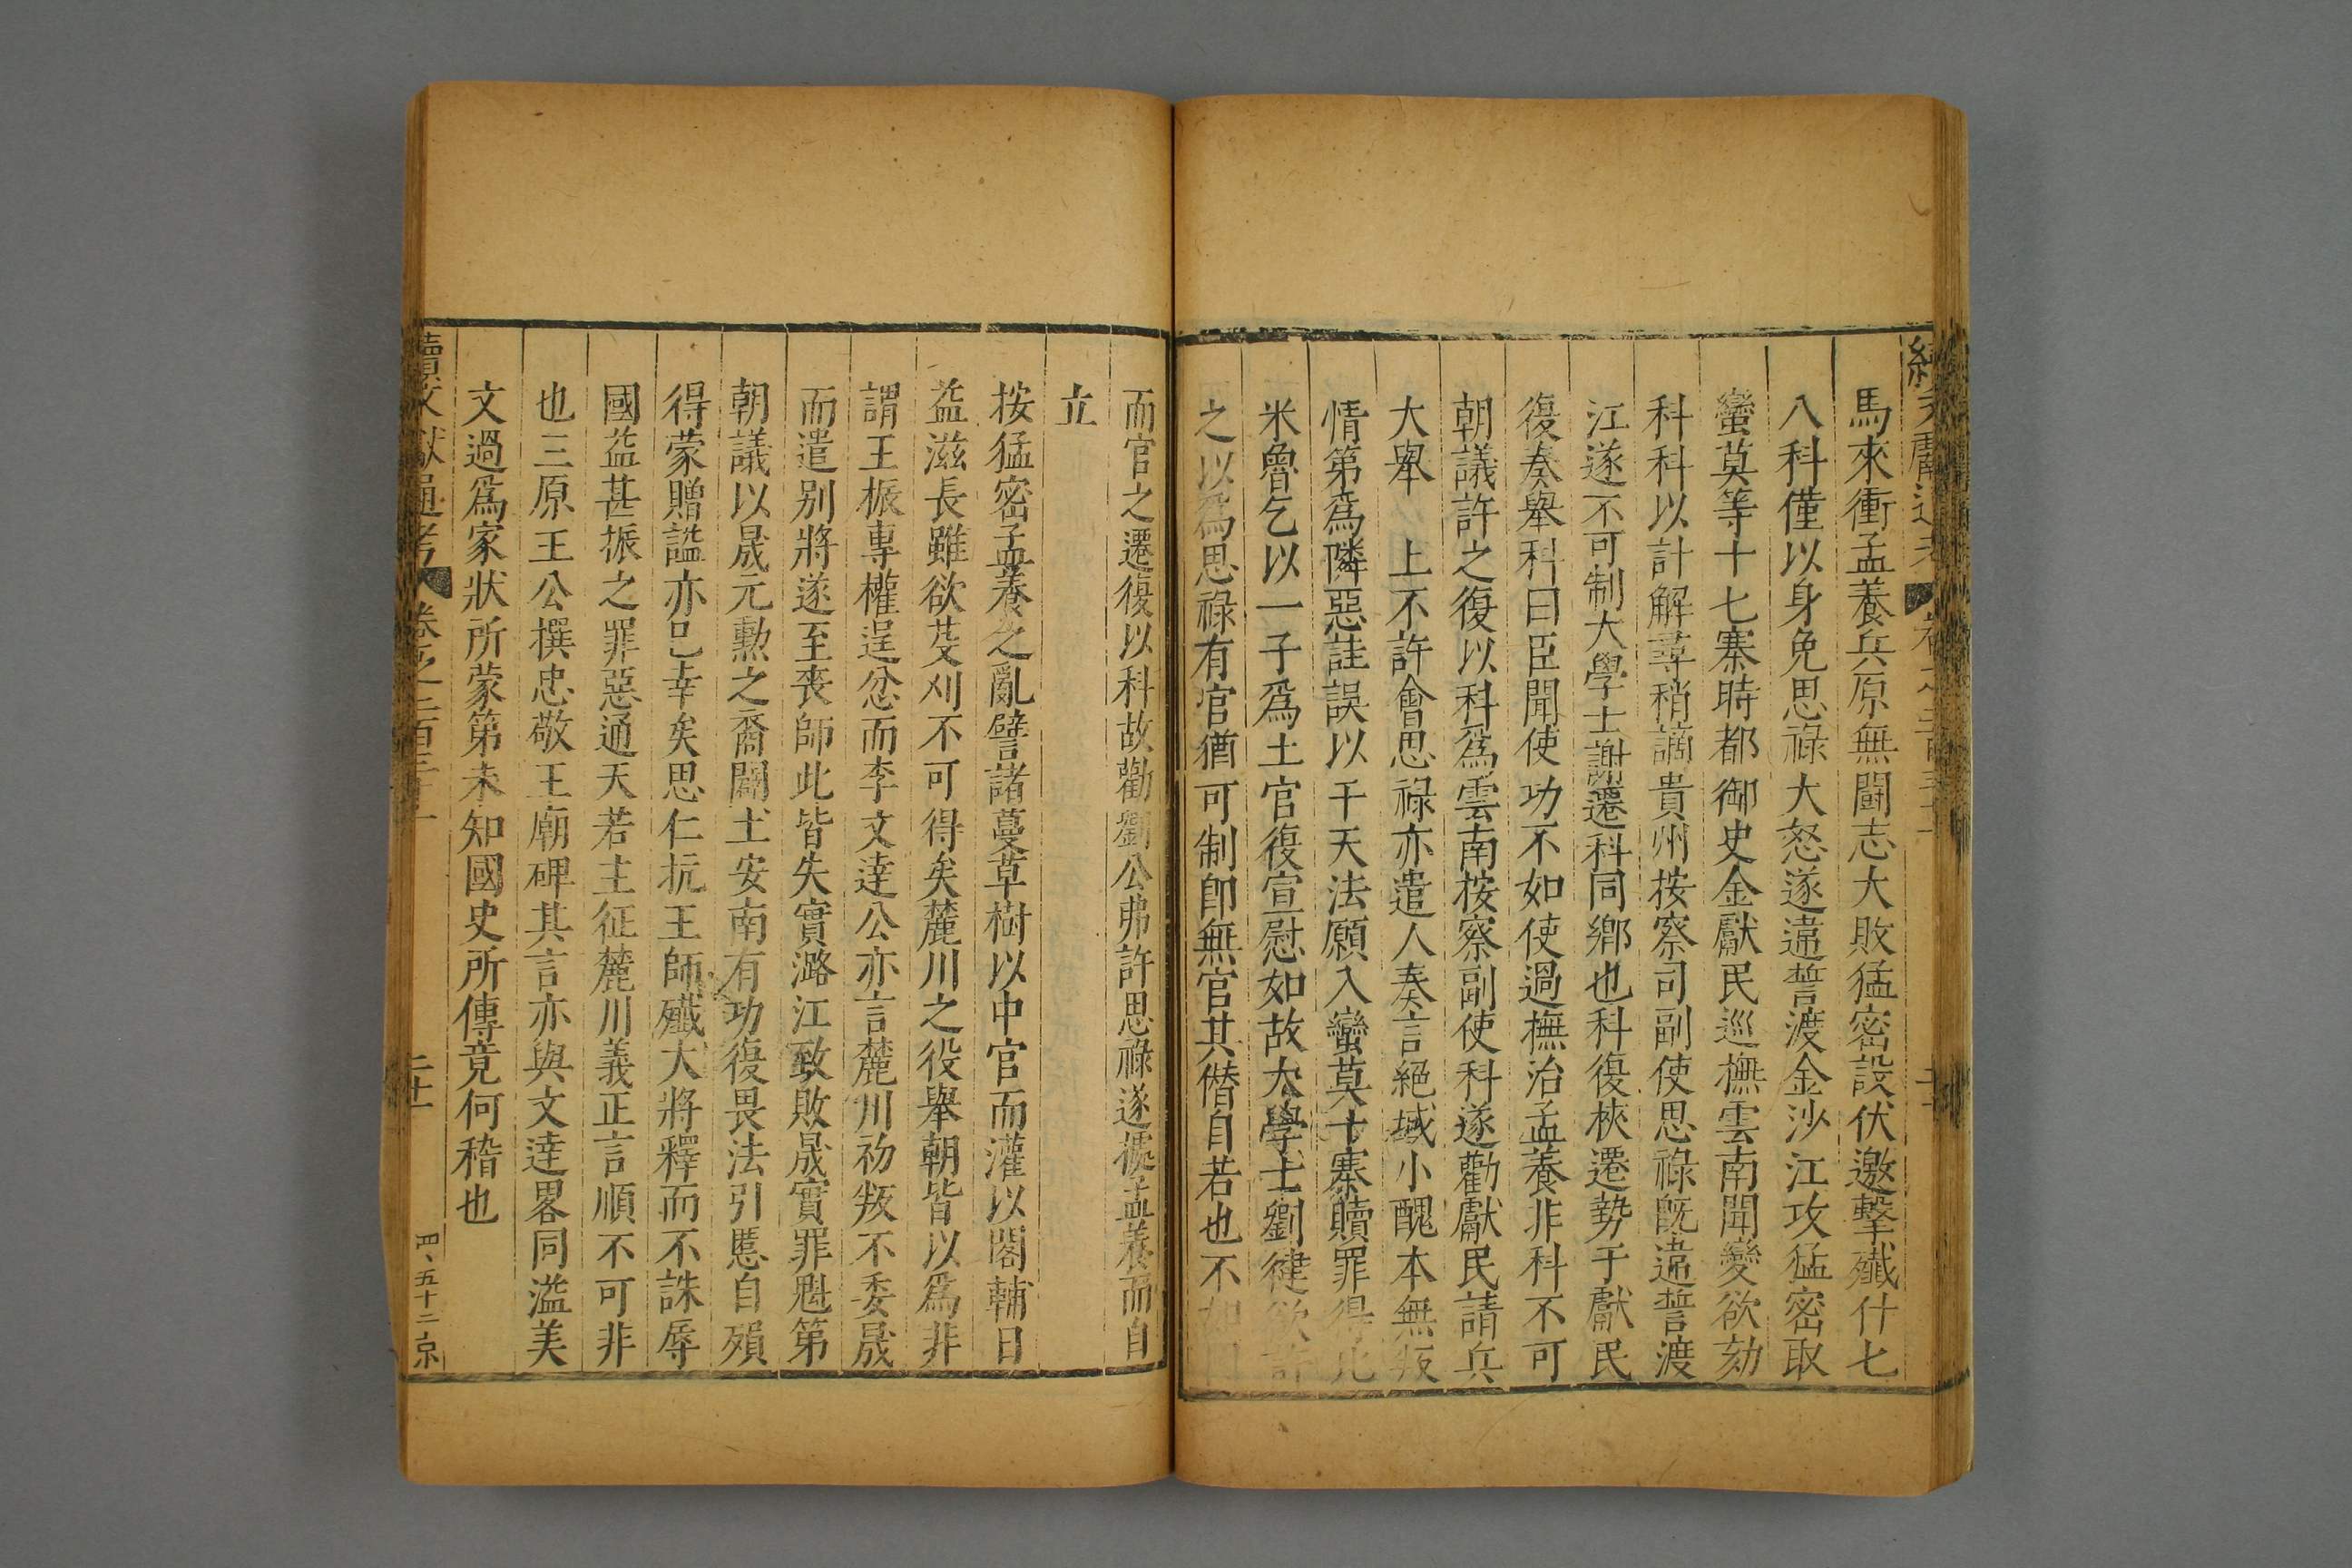 馬來衝孟養兵原無鬭志大敗猛密設伏邀擊殲什七
八科僅以身免思祿大怒遂違誓渡金沙江攻猛密取
蠻莫等十七寨時都御史金獻民巡撫雲南聞變欲劾
科科以計解尋稍謫貴州按察司副使思祿旣違誓渡
江遂不可制大學士謝遷科同鄉也科復挾遷勢于獻民
復奏舉科曰臣聞使功不如使過撫治孟養非科不可
朝議許之復以科爲雲南按察副使科遂勸獻民請兵
大舉 上不許會思祿亦遣人奏言絕域小醜本無叛
情第爲隣惡詿誤以干天法願入蠻莫十寨贖罪得比
米魯乞以一子爲土官復宣慰如故大學士劉健欲許
之以爲思祿有官猶可制卽無官其僭自若也不如因
而官之遷復以科故勸劉公弗許思祿遂據孟養而自
立
按猛密孟養之亂譬諸蔓草樹以中官而灌以閣輔日
益滋長雖欲芟刈不可得矣麓川之役舉朝皆以爲非
謂王振專權逞忿而李文達公亦言麓川初叛不委晟
而遣别將遂至喪師此皆失實潞江致敗晟實罪魁第
朝議以晟元勲之裔闢土安南有功復畏法引慝自殞
得蒙贈諡亦已幸矣思仁抗王師殲大將釋而不誅辱
國益甚振之罪惡通天若主征麓川義正言順不可非
也三原王公撰忠敬王廟碑其言亦與文達畧同溢美
文過爲家狀所蒙第未知國史所傳竟何稽也
續文獻通考 卷之二百三十 二十 四、五十二 京